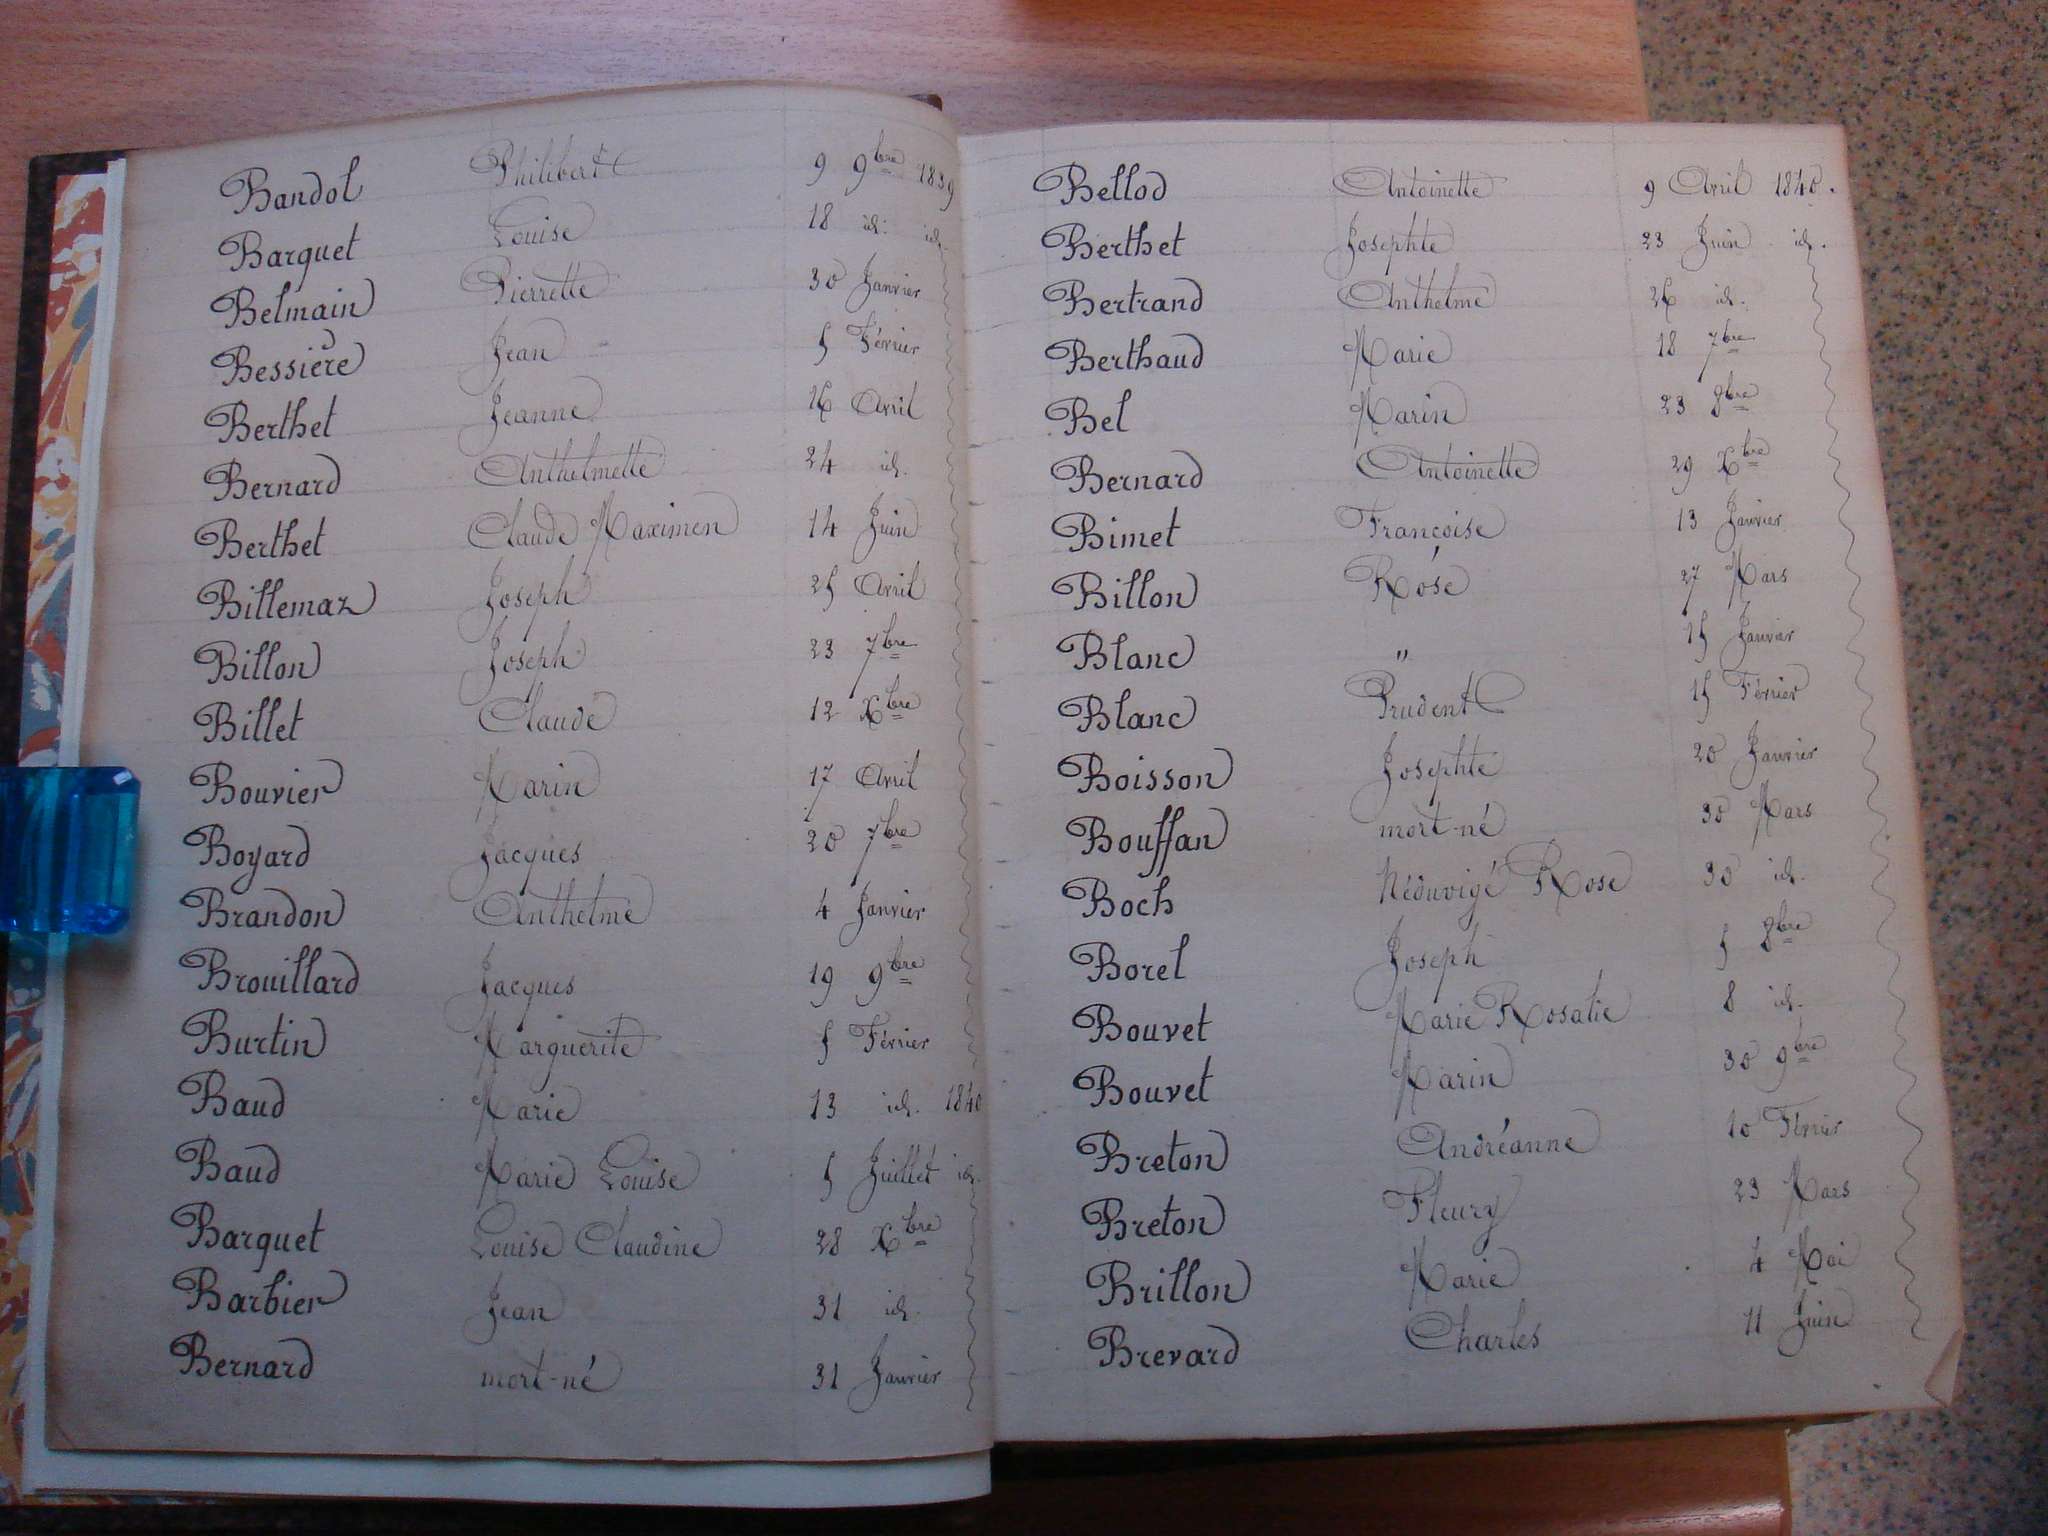 Bandol Philibert 9 9bre 1839
Barquet Louise 18 id. id.
Belmain Pierrette 30 Janvier
Bessière Jean 5 Février
Berthet Jeanne 16 Avril
Bernard Anthelmette 24 id.
Berthet Claude Maximen 14 Juin
Billemaz Joseph 25 Avril
Billon Joseph 23 7bre
Billet Claude 12 Xbre
Bouvier Marin 17 Avril
Boyard Jacques 20 7bre
Brandon Anthelme 4 Janvier
Brouillard Jacques 19 9bre
Burtin Marguerite 5 Février
Baud Marie 13 id. 1840
Baud Marie Louise 5 Juillet id.
Barquet Louise Claudine 28 Xbre
Barbier Jean 31 id.
Bernard mort-né 31 Janvier
Bellod Antoinette 9 Avril 1840.
Berthet Josephte 23 Juin id.
Bertrand Anthelme 26 id.
Berthaud Marie 18 7bre
Bel Marin 23 8bre
Bernard Antoinette 29 Xbre
Bimet Francoise 13 Janvier
Billon Rose 27 Mars
Blanc " 15 Janvier
Blanc Prudent 15 Février
Boisson Josephte 20 Janvier
Bouffan mort-né 30 Mars
Boch Rose 30 id.
Borel Joseph 5 8bre
Bouvet Marie Rosalie 8 id.
Bouvet Marin 30 9bre
Breton Andréanne 10 Février
Breton Fleury 23 Mars
Brillon Marie 4 Mai
Brevard Charles 11 Juin